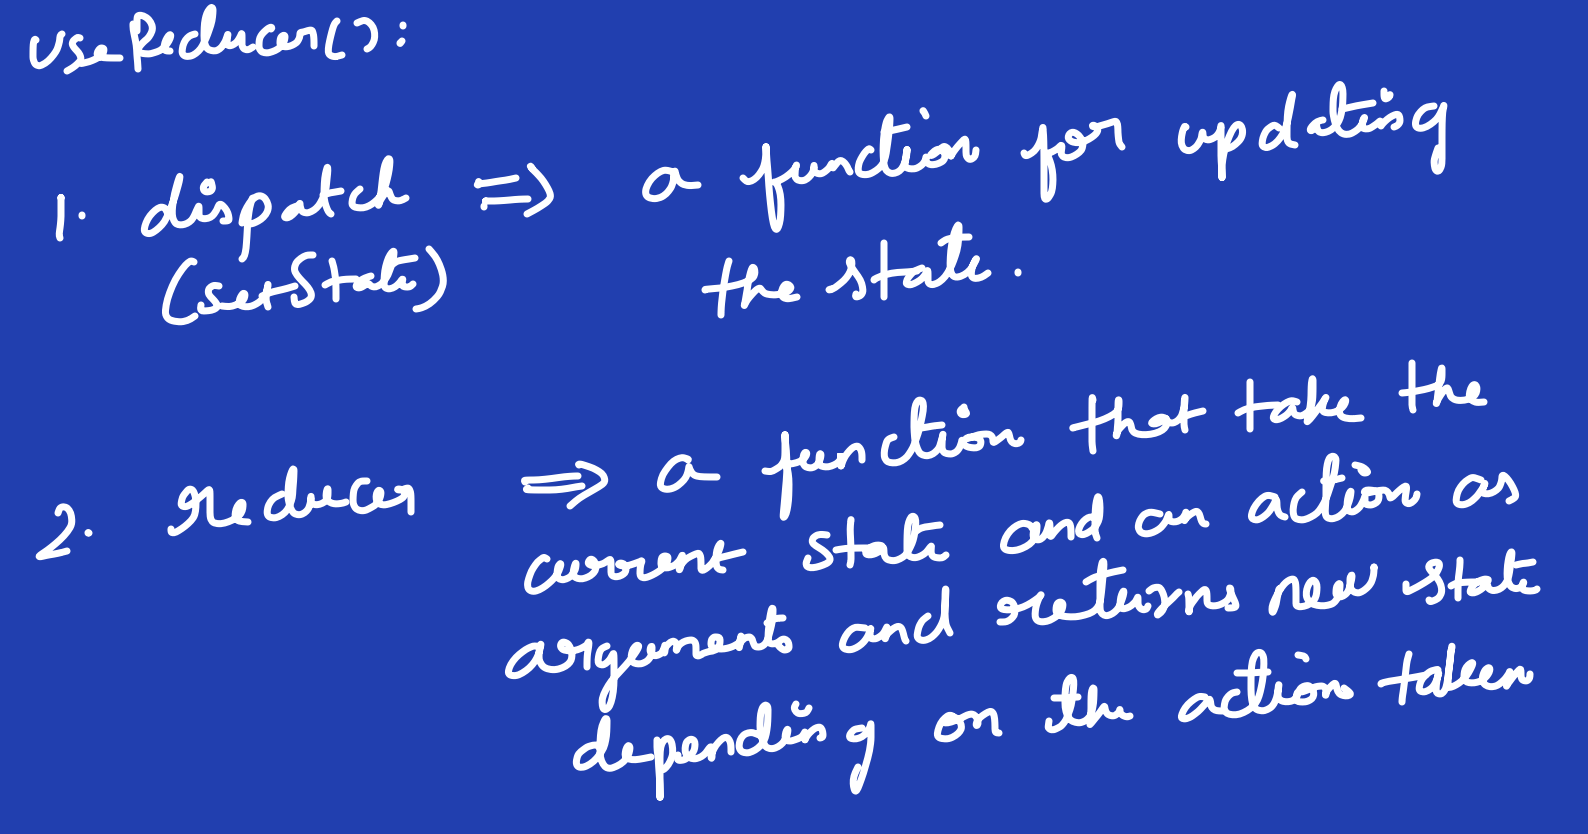 useReducer():
1. dispatch ⇒ a function for updating
(setState) the state.
2. reducer ⇒ a function that take the
current state and an action as
arguments and returns new state
depending on the action taken